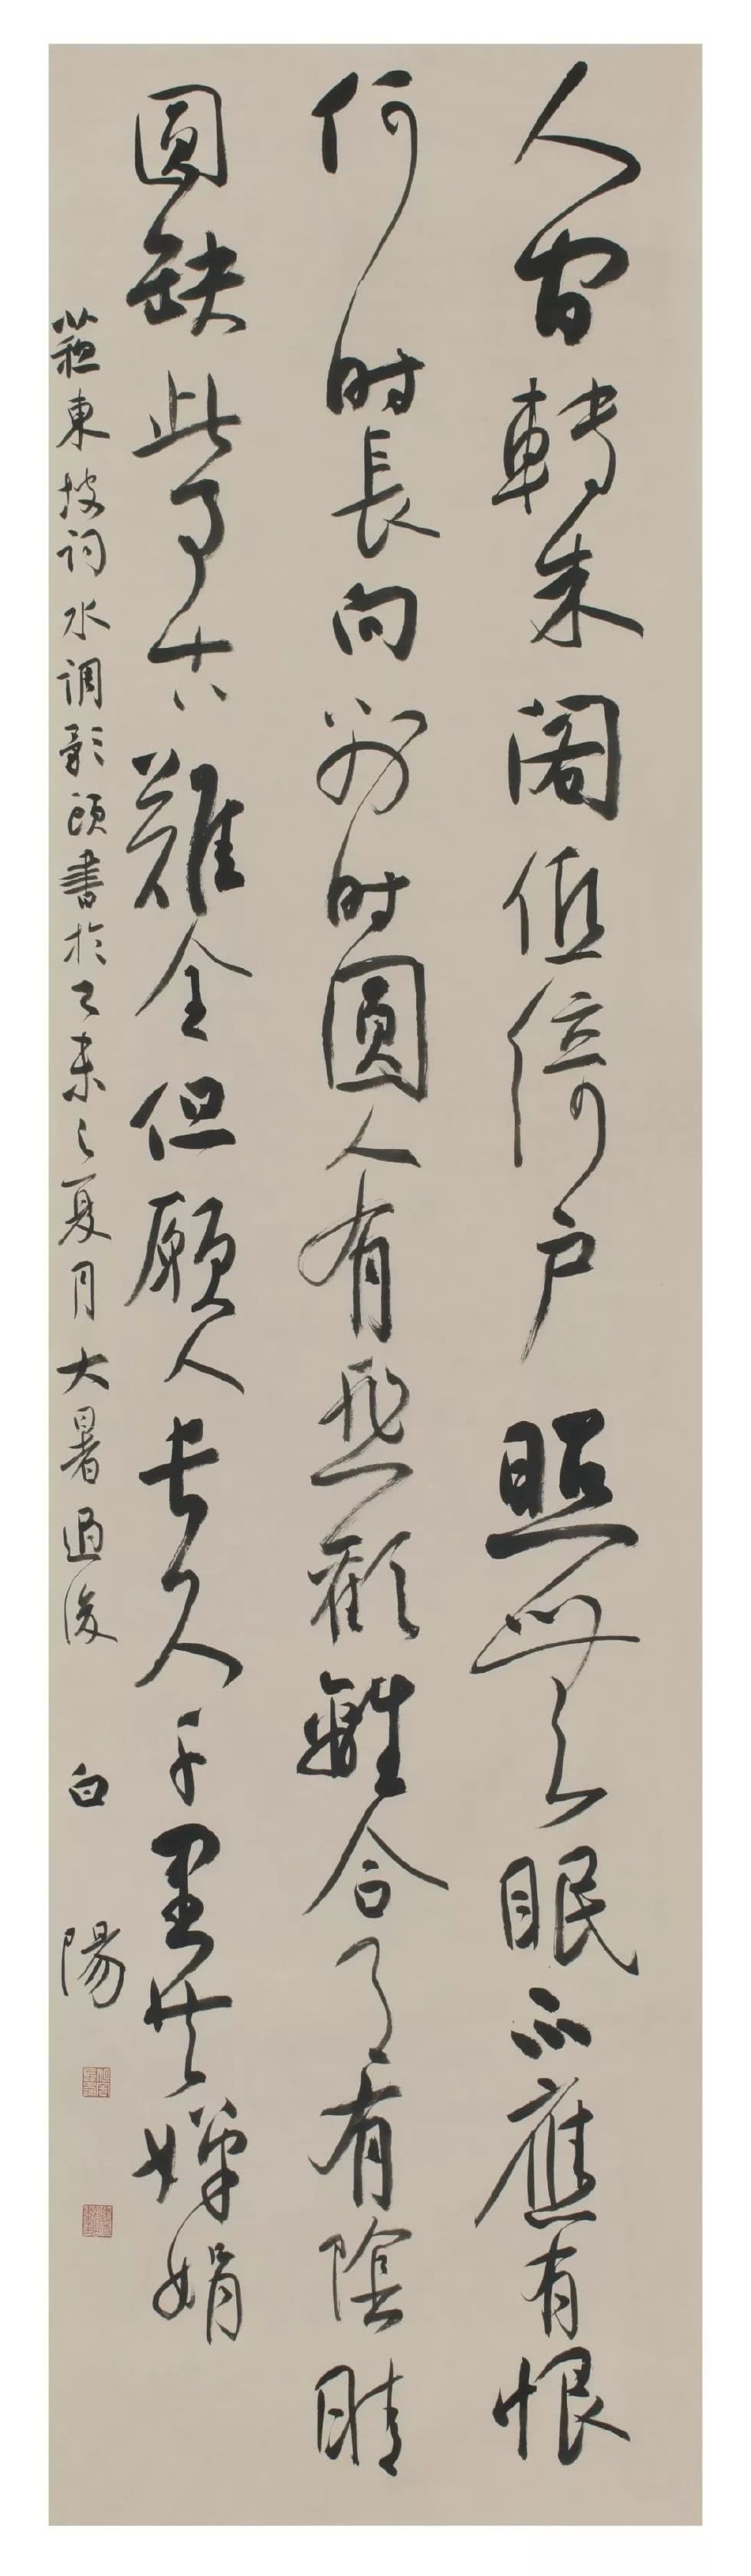 人間轉朱閣低綺戶照無眠不應有恨
何時長向別時圓人有悲歡離合月有陰晴
圓缺此事古難全但願人長久千里共嬋娟
蘇東坡詞水調歌頭書於乙未之夏月大暑過後 白陽